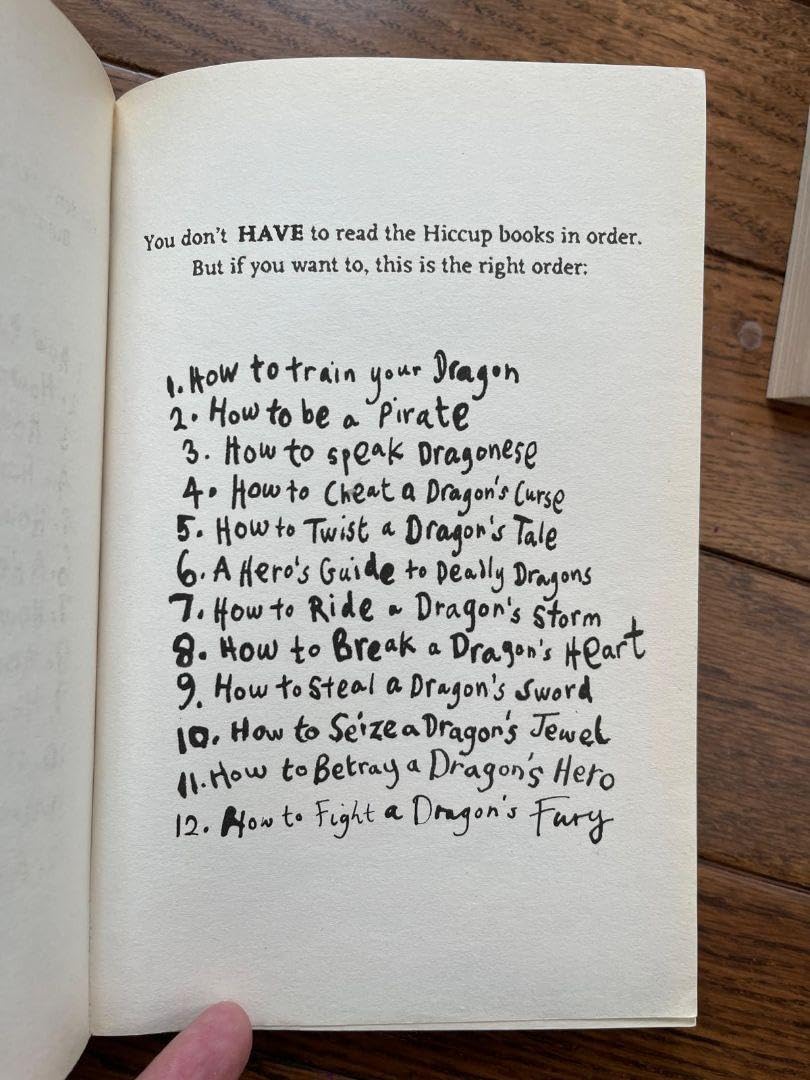 You don't HAVE to read the Hiccup books in order.
But if you want to, this is the right order:
1. How to train your Dragon
2. How to be a Pirate
3. How to speak Dragonese
4. How to Cheat a Dragon's Curse
5. How to Twist a Dragon's Tale
6. A Hero's Guide to Deadly Dragons
7. How to Ride a Dragon's Storm
8. How to Break a Dragon's Heart
9. How to Steal a Dragon's Sword
10. How to Seize a Dragon's Jewel
11. How to Betray a Dragon's Hero
12. How to Fight a Dragon's Fury